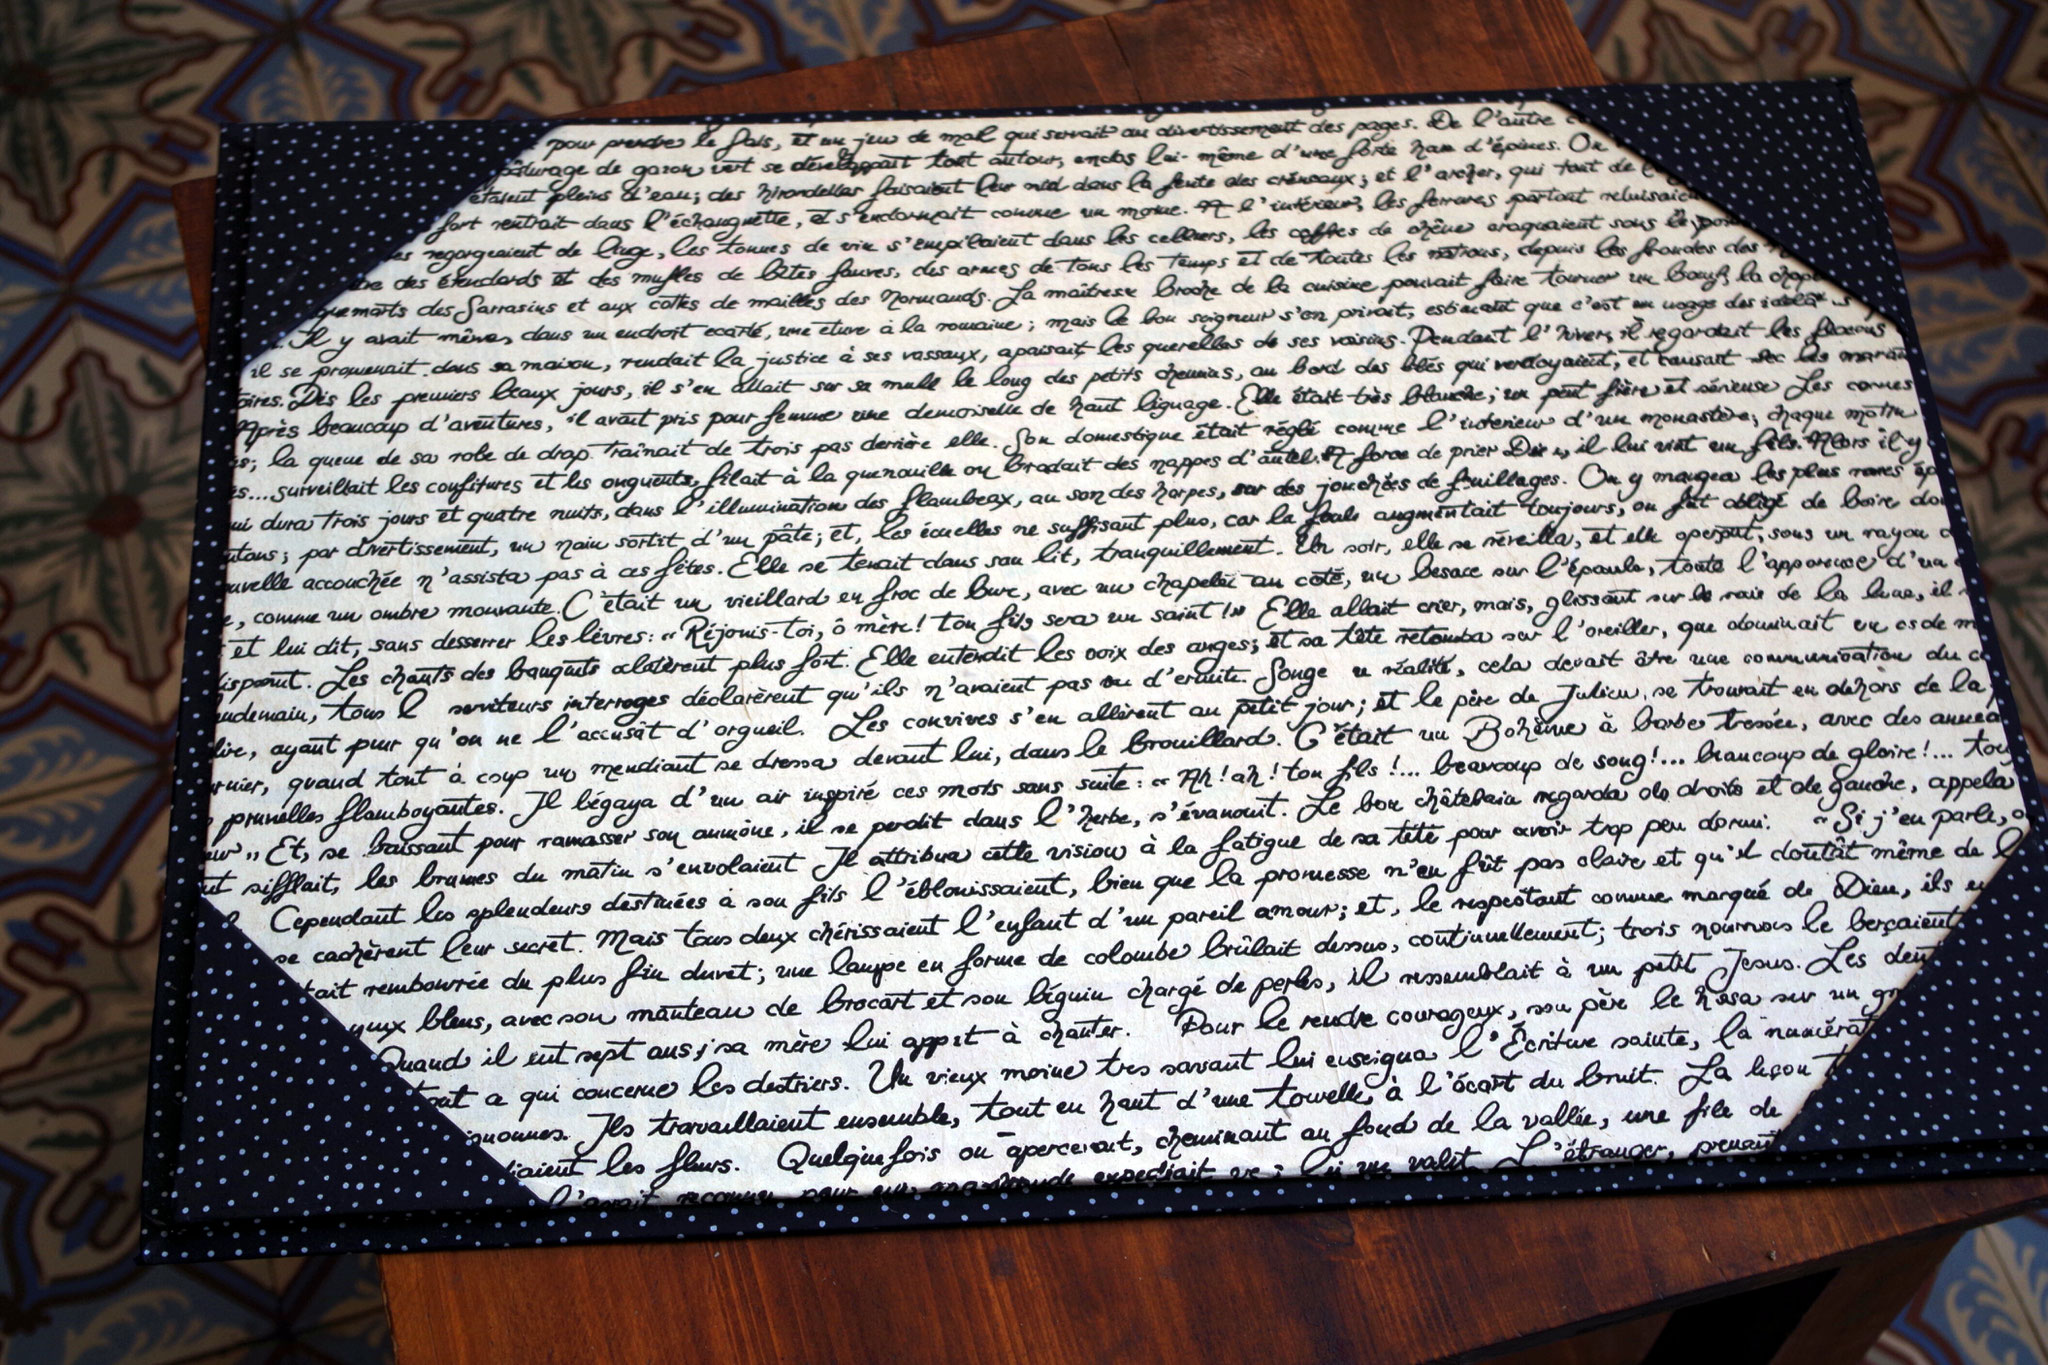 pour prendre le frais, et un jeu de mail qui servait au divertissement des pages. De l'autre
pâturage de gazon vert se développait tout autour, enclos lui-même d'une forte haie d'épines. On
étaient pleins d'eau; des hirondelles faisaient leur nid dans la fente des créneaux; et l'archer, qui tout de
fort rentrait dans l'échauguette, et s'endormait comme un moine. A l'intérieur, les ferrures partout reluisaient
regorgeaient de linge, les tonnes de vin s'empilaient dans les celliers, les coffres de chêne craquaient sous le
des étendards et des mufles de bêtes fauves, des armes de tous les temps et de toutes les nations, depuis les frondes des
des Sarrasins et aux cottes de mailles des Normands. La maîtresse broche de la cuisine pouvait faire tourner un bœuf; la
Il y avait même, dans un endroit ecarté, une etuve à la romaine; mais le bon seigneur s'en privait, estimant que c'est un usage des
il se promenait dans sa maison, rendait la justice à ses vassaux, apaisait les querelles de ses voisins. Pendant l'hiver, il regardait les flocons
Dès les premiers beaux jours, il s'en allait sur sa mule le long des petits chemins, au bord des blés qui verdoyaient, et causait avec les
Après beaucoup d'aventures, il avait pris pour femme une demoiselle de haut lignage. Elle était très blanche; un peu fière et sérieuse Les cornes
la queue de sa robe de drap traînait de trois pas derrière elle. Son domestique était réglé comme l'interieur d'un monastère; chaque matin
surveillait les confitures et les onguents, filait à la quenouille ou brodait des nappes d'autel. A force de prier Dieu, il lui vint un fils. Alors il y
dura trois jours et quatre nuits, dans l'illumination des flambeaux, au son des harpes, sur des jonchées de feuillages. On y mangea les plus rares
par divertissement, un nain sortit d'un pâté; et, les écuelles ne suffisant plus, car la foule augmentait toujours, on fut obligé de boire
accouchée n'assista pas à ces fêtes. Elle se tenait dans son lit, tranquillement. Un soir, elle se réveilla, et elle aperçut, sous un rayon
comme un ombre mouvante. C'était un vieillard en froc de bure, avec un chapelet au coté, un besace sur l'épaule, toute l'apparence d'un
et lui dit, sans desserrer les lèvres: « Réjouis-toi, ô mère! ton fils sera un saint!» Elle allait crier, mais, glissant sur le raie de la lune, il
Les chants des banquets eclatèrent plus fort. Elle entendit les voix des anges; et sa tête retomba sur l'oreiller, que dominait un os de
tous serviteurs interroges déclarèrent qu'ils n'avaient pas vu d'ermite. Songe réalité, cela devait être une communication du
ayant peur qu'on ne l'accusât d'orgueil. Les convives s'en allèrent au petit jour; et le père de Julien se trouvait en dehors de la
quand tout à coup un mendiant se dressa devant lui, dans le brouillard. C'était un Bohème à barbe tressée, avec des
prunelles flamboyantes. Il bégaya d'un air inspiré ces mots sans suite: « Ah! ah! ton fils!... beaucoup de sang!... beaucoup de gloire!...
Et, se baissant pour ramasser son aumône, il se perdit dans l'herbe, s'évanouit. Le bon châtelain regarda de droite et de gauche, appela
sifflait, les brumes du matin s'envolaient Il attribua cette vision à la fatigue de sa tête pour avoir trop peu dormi. « Si j'en parle,
Cependant les splendeurs destinées à son fils l'éblouissaient, bien que la promesse n'en fût pas claire et qu'il doutât même de
se cachèrent leur secret. Mais tous deux chérissaient l'enfant d'un pareil amour; et, le respectant comme marqué de Dieu, ils
rembourrée du plus fin duvet; une lampe en forme de colombe brûlait dessus, continuellement; trois nourrices le berçaient
bleus, avec son manteau de brocart et son béguin chargé de perles, il ressemblait à un petit Jesus. Les
Quand il eut sept ans, sa mère lui apprit à chanter. Pour le rendre courageux, son père le hissa sur un
qui concerne les destriers. Un vieux moine tres savant lui enseigna l'Écriture sainte, la
Ils travaillaient ensemble, tout en haut d'une tourelle, à l'écart du bruit. La leçon
les fleurs. Quelquefois on apercevait, cheminant au fond de la vallée, une file de
l'avait reconnu pour expédiait valet. L'étranger, prenant